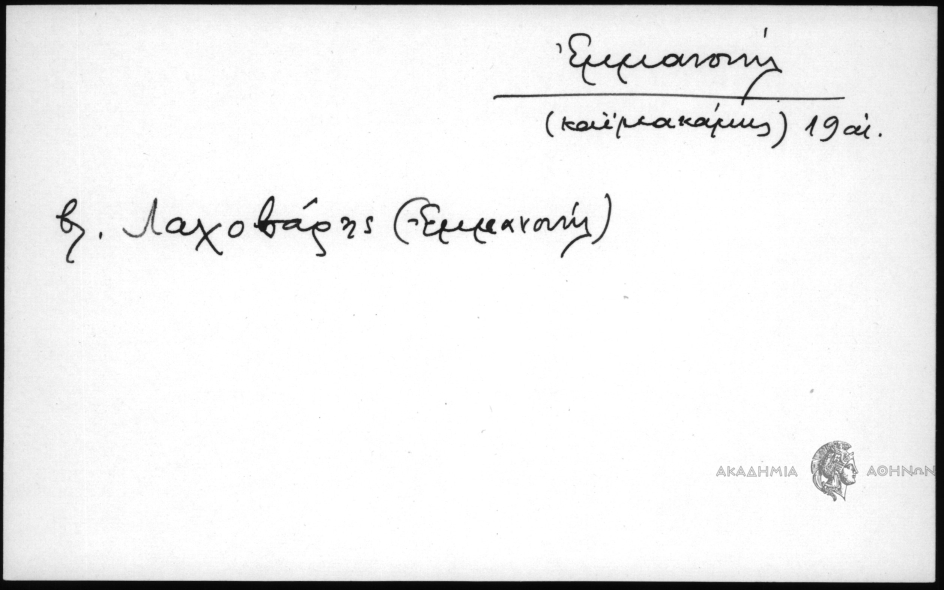 Ἐμμανουήλ
(καϊμακάμης) 19 αἰ.
βλ. Λαχοβάρης (Ἐμμανουήλ)
ΑΚΑΔΗΜΙΑ ΑΘΗΝΩΝ